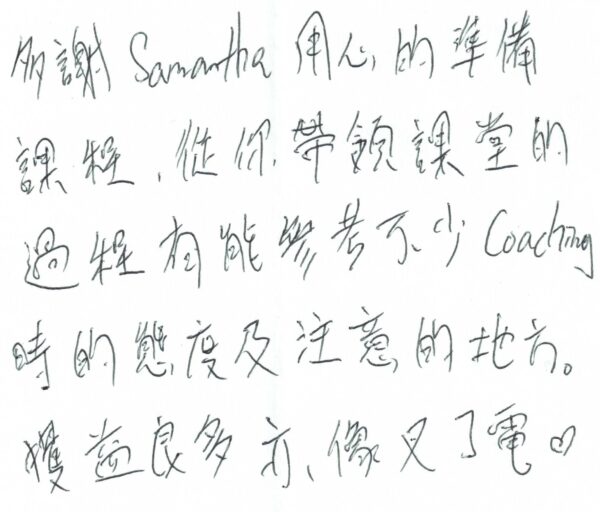 多謝 Samantha 用心的準備
課程、從你帶領課堂的
過程有能參考不少 Coaching
時的態度及注意的地方。
獲益良多亦像叉了電♡